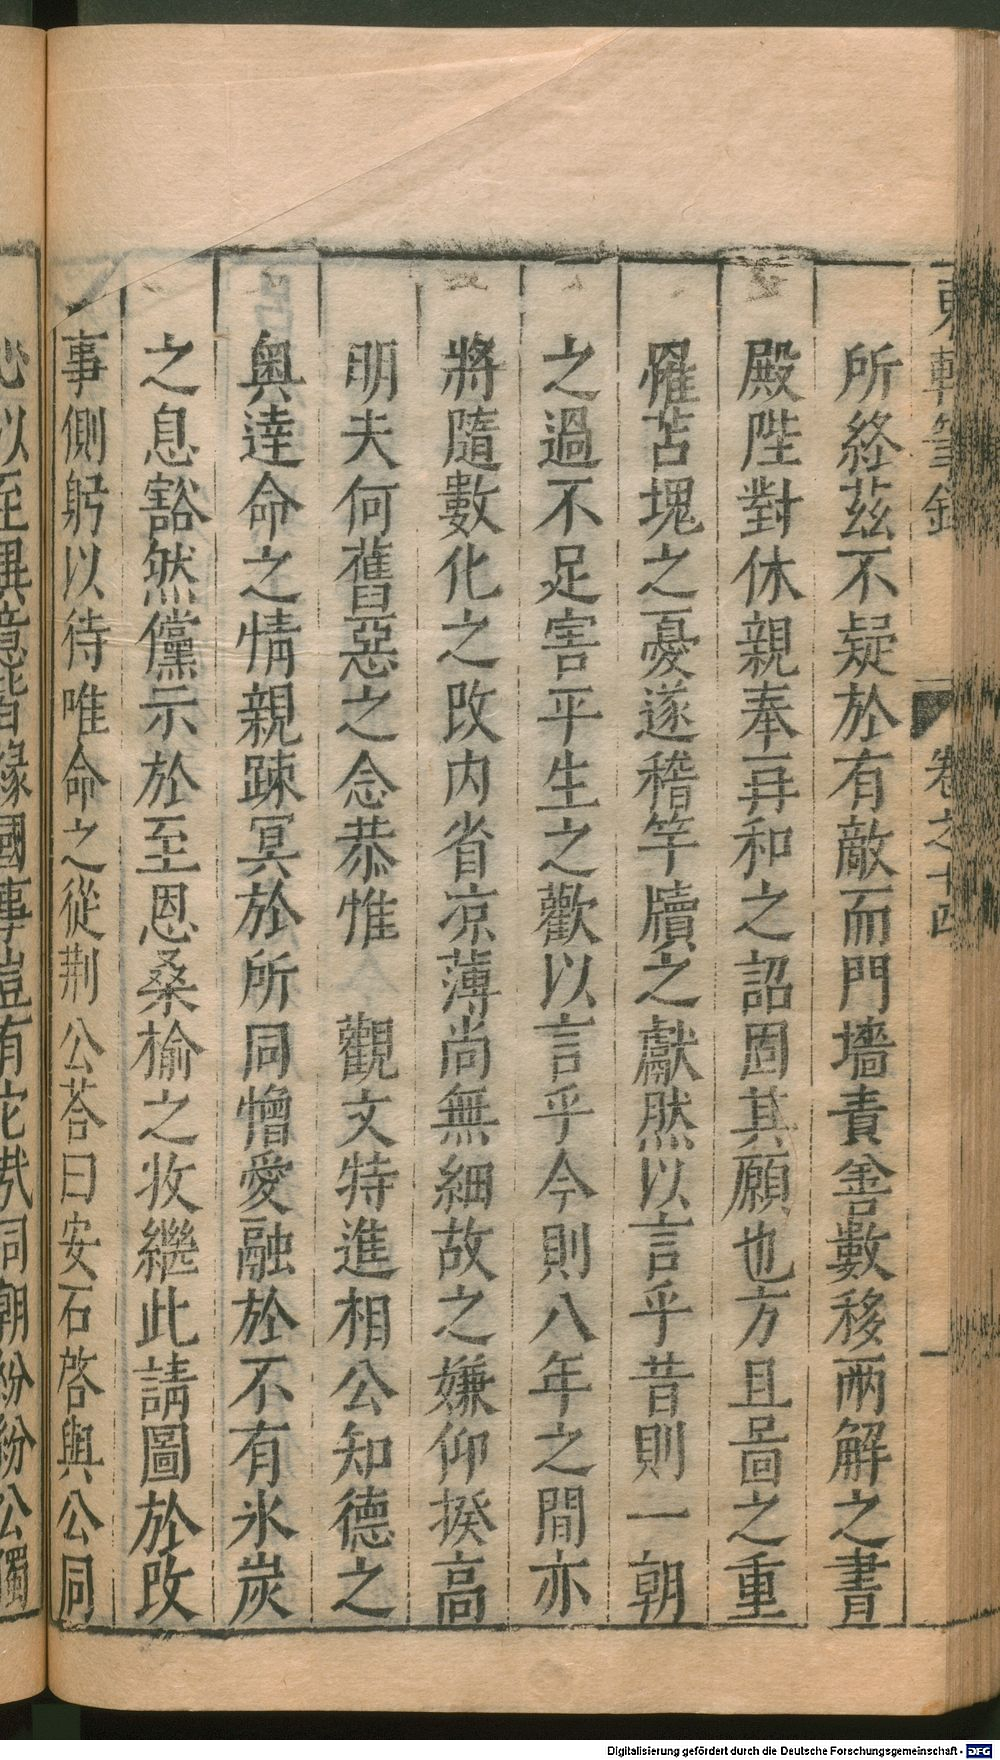 東軒筆錄 卷之十四
所終茲不疑於有敵而門墻責善數移兩解之書
殿陛對休親奉再和之詔固其願也方且啚之重
罹苫塊之憂遂稽竿牘之獻然以言乎昔則一朝
之過不足害平生之歡以言乎今則八年之間亦
將隨數化之改内省凉薄尚無細故之嫌仰揆高
明夫何舊惡之念恭惟 觀文特進相公知德之
奧達命之情親踈冥於所同憎愛融於不有氷炭
之息豁然儻示於至恩桑榆之收繼此請圖於改
事側躬以待唯命之從荆公荅曰安石啓與公同
心以至異意皆緣國事豈有它哉同朝紛紛公獨
Digitalisierung gefördert durch die Deutsche Forschungsgemeinschaft - DFG